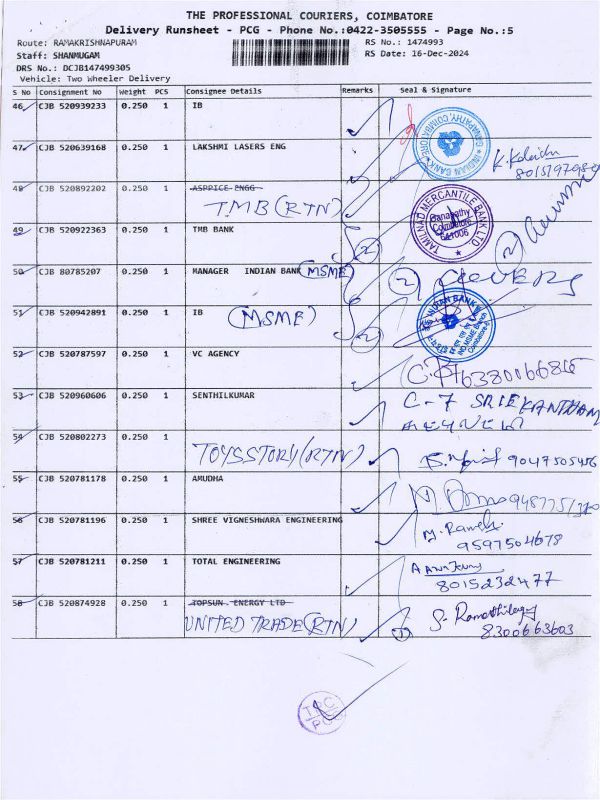 THE PROFESSIONAL COURIERS, COIMBATORE
Delivery Runsheet - PCG - Phone No.:0422-3505555 - Page No.:5
Route: RAMAKRISHNAPURAM RS No.: 1474993
Staff: SHANMUGAM RS Date: 16-Dec-2024
DRS No.: DCJB147499305
Vehicle: Two Wheeler Delivery
S No Consignment No Weight PCS Consignee Details Remarks Seal & Signature
46 CJB 520939233 0.250 1 IB
47 CJB 520639168 0.250 1 LAKSHMI LASERS ENG
INDIAN BANK GANAPATHY, COIMBATORE
48 CJB 520892202 0.250 1 ASPPICE ENGG
TMB (RTN)
49 CJB 520922363 0.250 1 TMB BANK (2)
TAMILNAD MERCANTILE BANK LTD
Ganapathy
Coimbatore
641006
(2)
50 CJB 80785207 0.250 1 MANAGER INDIAN BANK (MSME) (2)
51 CJB 520942891 0.250 1 IB (MSME) (2)
INDIAN BANK
52 CJB 520787597 0.250 1 VC AGENCY
53 CJB 520960606 0.250 1 SENTHILKUMAR C-7 SRIE KANTHAM
54 CJB 520802273 0.250 1
TOYSSTORY (RTN) 9047505456
55 CJB 520781178 0.250 1 AMUDHA
56 CJB 520781196 0.250 1 SHREE VIGNESHWARA ENGINEERING
9597504678
57 CJB 520781211 0.250 1 TOTAL ENGINEERING
8015232477
58 CJB 520874928 0.250 1 TOPSUN ENERGY LTD
UNITED TRADE (RTN) (1)
8300663603